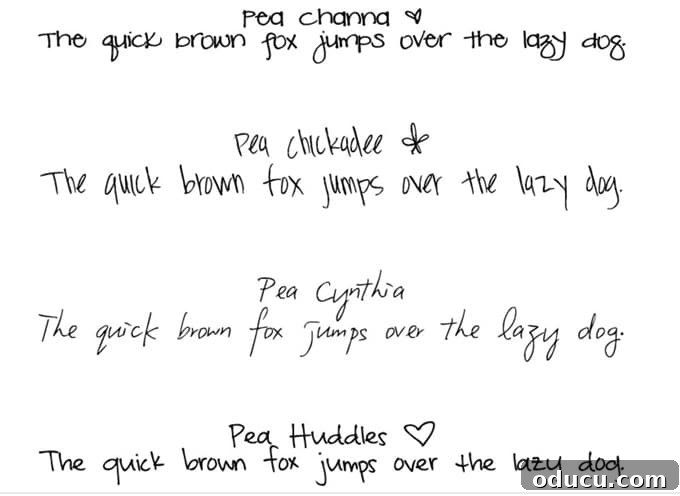 Pea channa
The quick brown fox jumps over the lazy dog.
Pea chickadee
The quick brown fox jumps over the lazy dog.
Pea Cynthia
The quick brown fox jumps over the lazy dog.
Pea Huddles
The quick brown fox jumps over the lazy dog.
oducu.com